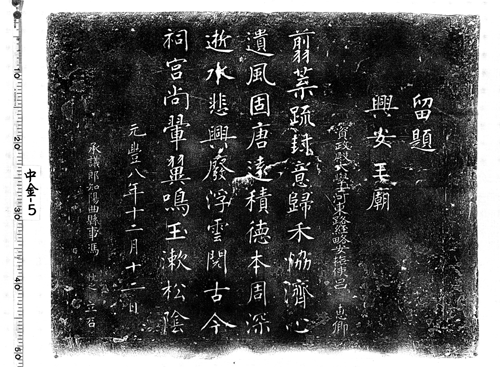 留題
興安王廟
資政殿大學士河東路經略安撫使呂惠卿
翦葉疏封意歸禾恊濟心
遺風固唐遠積德本周深
逝水悲興廢浮雲閱古今
祠宮尚翬翼鳴玉漱松陰
元豐八年十二月十二日
承議郎知陽曲縣事馮 立石
中金-5
10
20
30
40
50